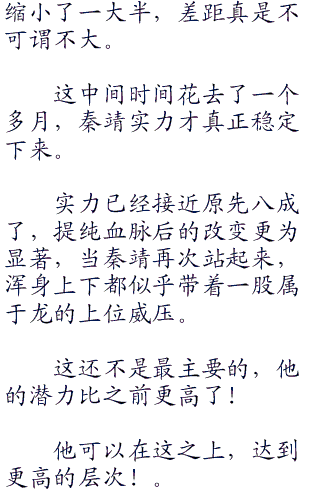 缩小了一大半，差距真是不
可谓不大。
这中间时间花去了一个
多月，秦靖实力才真正稳定
下来。
实力已经接近原先八成
了，提纯血脉后的改变更为
显著，当秦靖再次站起来，
浑身上下都似乎带着一股属
于龙的上位威压。
这还不是最主要的，他
的潜力比之前更高了！
他可以在这之上，达到
更高的层次！。